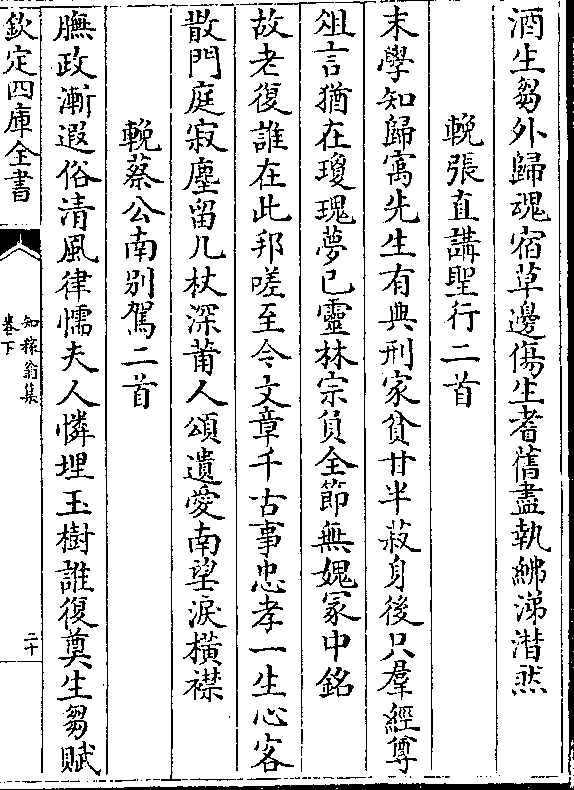 酒生芻外歸魂宿草邊傷生耆舊盡執紼涕潸然
輓張直講聖行二首
末學知歸寓先生有典刑家貧甘半菽身後只羣經尊
俎言猶在瓊瑰夢已靈林宗負全節無媿冢中銘
故老復誰在此邦嗟至今文章千古事忠孝一生心客
散門庭寂塵留几杖深莆人頌遺愛南望淚橫襟
輓蔡公南别駕二首
膴政漸遐俗清風律懦夫人憐埋玉樹誰復奠生芻賦
欽定四庫全書
知稼翁集
卷下
二十